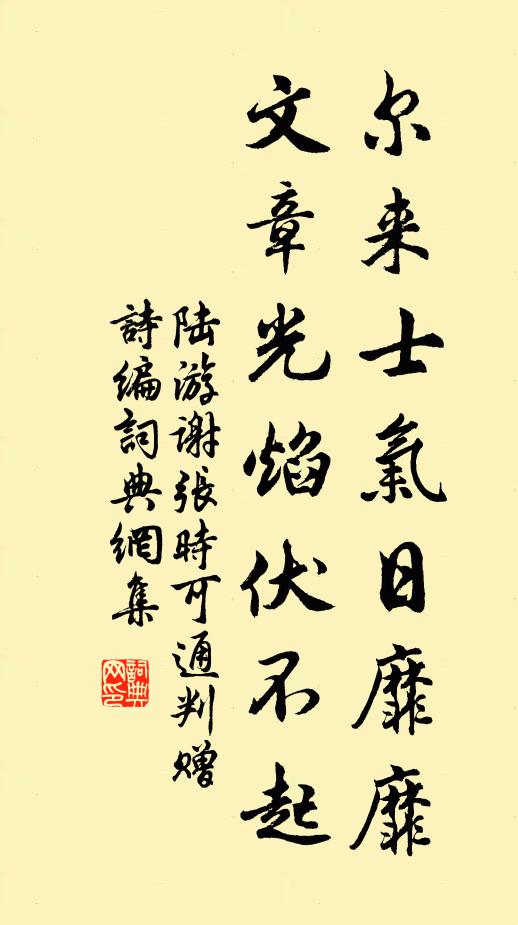 尔来士氣日靡靡
文章光焰伏不起
陆游谢張時可通判赠
詩編詞典網集
詞典
网印